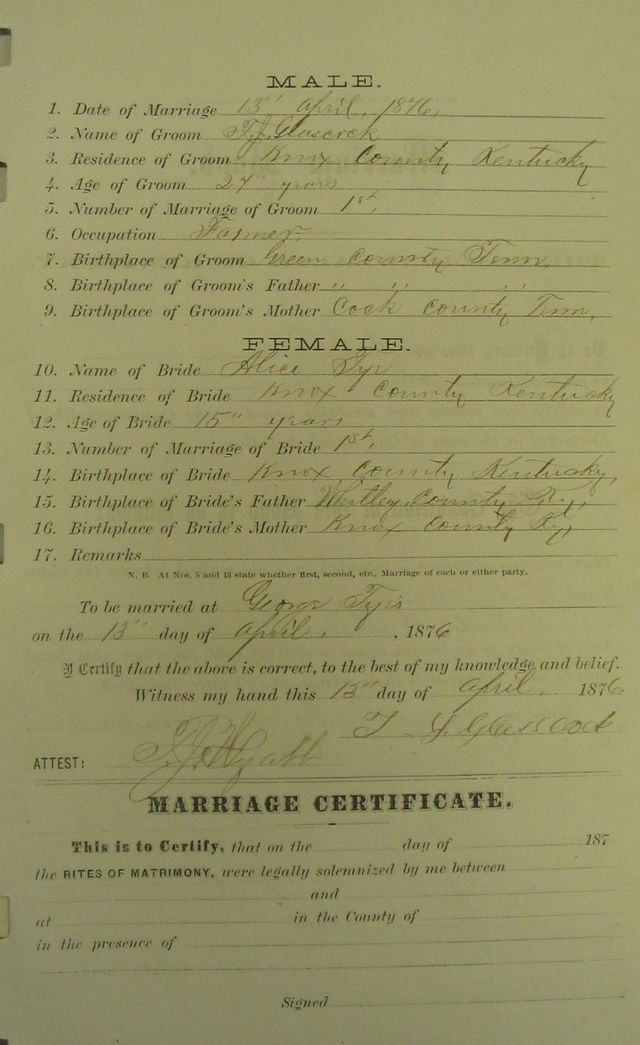 MALE.
1. Date of Marriage 13" April, 1876,
2. Name of Groom T.J. Glascock
3. Residence of Groom Knox County Kentucky
4. Age of Groom 27" years
5. Number of Marriage of Groom 1st,
6. Occupation Farmer.
7. Birthplace of Groom Green County Tenn,
8. Birthplace of Groom's Father " " "
9. Birthplace of Groom's Mother Cock County Tenn,
FEMALE.
10. Name of Bride Alice Tye
11. Residence of Bride Knox County Kentucky
12. Age of Bride 15" years
13. Number of Marriage of Bride 1st,
14. Birthplace of Bride Knox County Kentucky,
15. Birthplace of Bride's Father Whitley County Ky,
16. Birthplace of Bride's Mother Knox County Ky,
17. Remarks
N. B. At Nos. 5 and 13 state whether first, second, etc., Marriage of each or either party.
To be married at George Tye's
on the 13" day of April, , 1876
I Certify that the above is correct, to the best of my knowledge and belief.
Witness my hand this 13" day of April, 1876,
T J Glasscock
ATTEST: T.J. Hyatt
MARRIAGE CERTIFICATE.
This is to Certify, that on the day of 187
the RITES OF MATRIMONY, were legally solemnized by me between
and
at in the County of
in the presence of
Signed